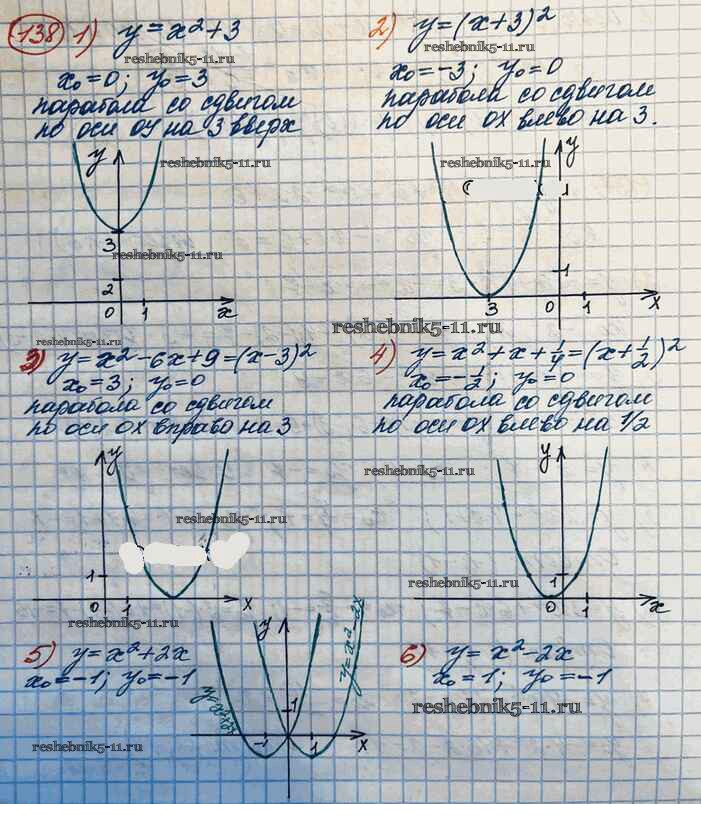 138 1) y=x²+3
reshebnik5-11.ru
x₀=0; y₀=3
парабола со сдвигом
по оси oy на 3 вверх
y
reshebnik5-11.ru
3
reshebnik5-11.ru
2
0 1 x
2) y=(x+3)²
reshebnik5-11.ru
x₀=-3; y₀=0
парабола со сдвигом
по оси ox влево на 3.
y
1
1
3 0 1 x
reshebnik5-11.ru
reshebnik5-11.ru
3) y=x²-6x+9=(x-3)²
x₀=3; y₀=0
парабола со сдвигом
по оси ox вправо на 3
y
reshebnik5-11.ru
1
0 1 x
reshebnik5-11.ru
4) y=x²+x+1/4=(x+1/2)²
x₀=-1/2; y₀=0
парабола со сдвигом
по оси ox влево на 1/2
y
reshebnik5-11.ru
1
reshebnik5-11.ru
0 1 x
5) y=x²+2x
x₀=-1; y₀=-1
y
y=x²+2x
y=x²-2x
1
-1 1 x
reshebnik5-11.ru
6) y=x²-2x
x₀=1; y₀=-1
reshebnik5-11.ru